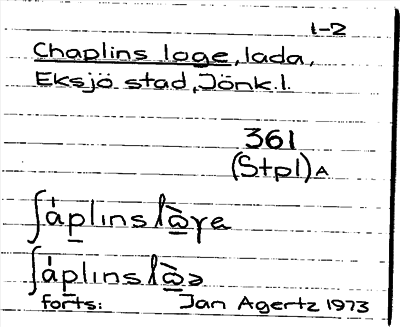 1-2
Chaplins loge, lada,
Eksjö stad, Jönk.l.
361
(Stpl) A
forts: Jan Agertz 1973